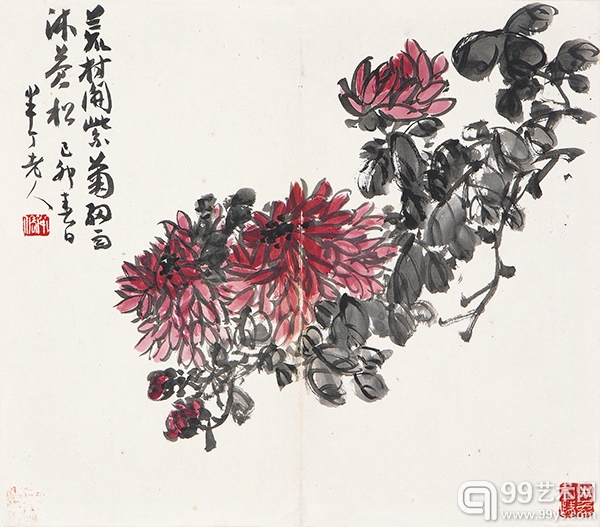 荒村開紫菊細雨
沐蒼松己卯春日
半丁老人
99艺术网
www.99ys.com